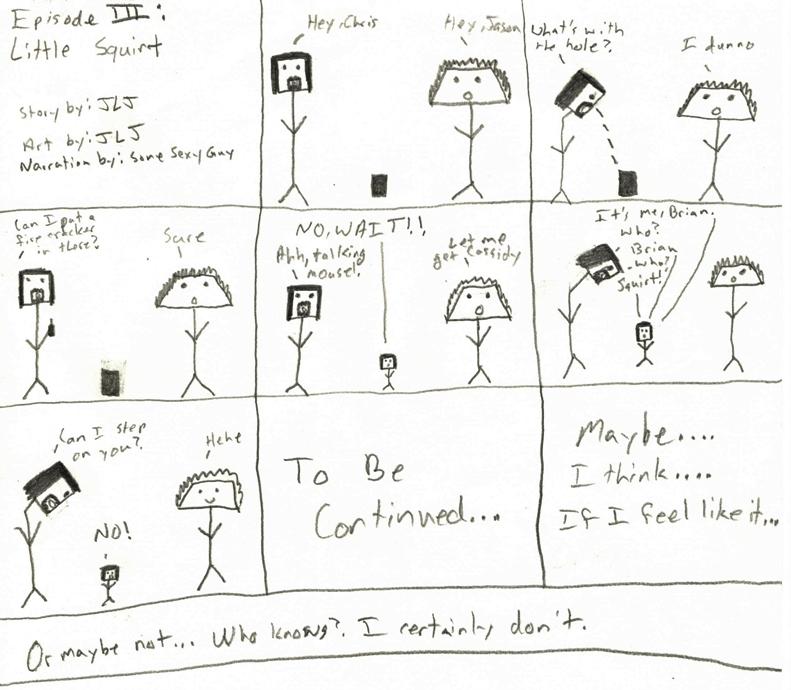 Episode III:
Little Squirt
Story by: JLJ
Art by: JLJ
Narration by: Some Sexy Guy
Hey, Chris
Hey, Jason
What's with
the hole?
I dunno
Can I put a
fire cracker
in there?
Sure
NO, WAIT!!
Ahh, talking
mouse!
Let me
get Cassidy
It's me, Brian.
Who?
Brian
Who?
Squirt!
Can I step
on you?
Hehe
NO!
To Be
Continued...
Maybe....
I think....
If I feel like it...
Or maybe not... Who knows?. I certainly don't.